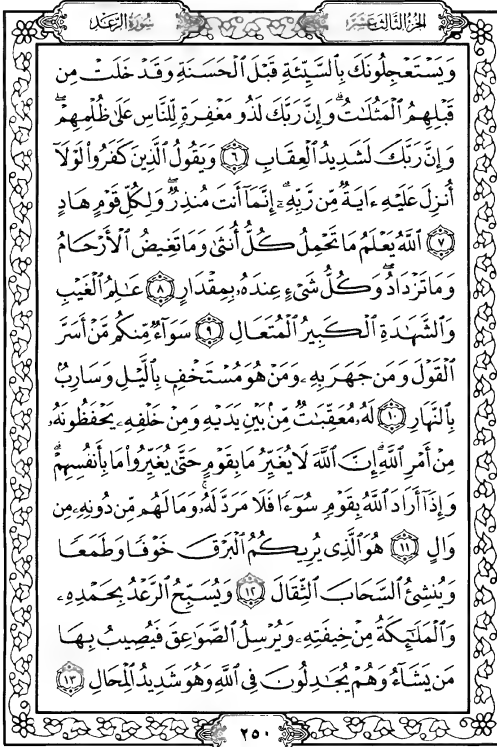 سُورَةُ الرَّعْدِ
الجُزْءُ الثَّالِثَ عَشَرَ
وَيَسْتَعْجِلُونَكَ بِالسَّيِّئَةِ قَبْلَ الْحَسَنَةِ وَقَدْ خَلَتْ مِن
قَبْلِهِمُ الْمَثُلَٰتُ ۗ وَإِنَّ رَبَّكَ لَذُو مَغْفِرَةٍ لِّلنَّاسِ عَلَىٰ ظُلْمِهِمْ ۖ
وَإِنَّ رَبَّكَ لَشَدِيدُ الْعِقَابِ ٦ وَيَقُولُ الَّذِينَ كَفَرُوا۟ لَوْلَآ
أُنزِلَ عَلَيْهِ ءَايَةٌ مِّن رَّبِّهِۦٓ ۗ إِنَّمَآ أَنتَ مُنذِرٌ ۖ وَلِكُلِّ قَوْمٍ هَادٍ
٧ اللَّهُ يَعْلَمُ مَا تَحْمِلُ كُلُّ أُنثَىٰ وَمَا تَغِيضُ الْأَرْحَامُ
وَمَا تَزْدَادُ ۖ وَكُلُّ شَىْءٍ عِندَهُۥ بِمِقْدَارٍ ٨ عَٰلِمُ الْغَيْبِ
وَالشَّهَٰدَةِ الْكَبِيرُ الْمُتَعَالِ ٩ سَوَآءٌ مِّنكُم مَّنْ أَسَرَّ
الْقَوْلَ وَمَن جَهَرَ بِهِۦ وَمَنْ هُوَ مُسْتَخْفٍۭ بِالَّيْلِ وَسَارِبٌۢ
بِالنَّهَارِ ١٠ لَهُۥ مُعَقِّبَٰتٌ مِّنۢ بَيْنِ يَدَيْهِ وَمِنْ خَلْفِهِۦ يَحْفَظُونَهُۥ
مِنْ أَمْرِ اللَّهِ ۗ إِنَّ اللَّهَ لَا يُغَيِّرُ مَا بِقَوْمٍ حَتَّىٰ يُغَيِّرُوا۟ مَا بِأَنفُسِهِمْ ۗ
وَإِذَآ أَرَادَ اللَّهُ بِقَوْمٍ سُوٓءًا فَلَا مَرَدَّ لَهُۥ ۚ وَمَا لَهُم مِّن دُونِهِۦ مِن
وَالٍ ١١ هُوَ الَّذِى يُرِيكُمُ الْبَرْقَ خَوْفًا وَطَمَعًا
وَيُنشِئُ السَّحَابَ الثِّقَالَ ١٢ وَيُسَبِّحُ الرَّعْدُ بِحَمْدِهِۦ
وَالْمَلَٰٓئِكَةُ مِنْ خِيفَتِهِۦ وَيُرْسِلُ الصَّوَٰعِقَ فَيُصِيبُ بِهَا
مَن يَشَآءُ وَهُمْ يُجَٰدِلُونَ فِى اللَّهِ وَهُوَ شَدِيدُ الْمِحَالِ ١٣
٢٥٠